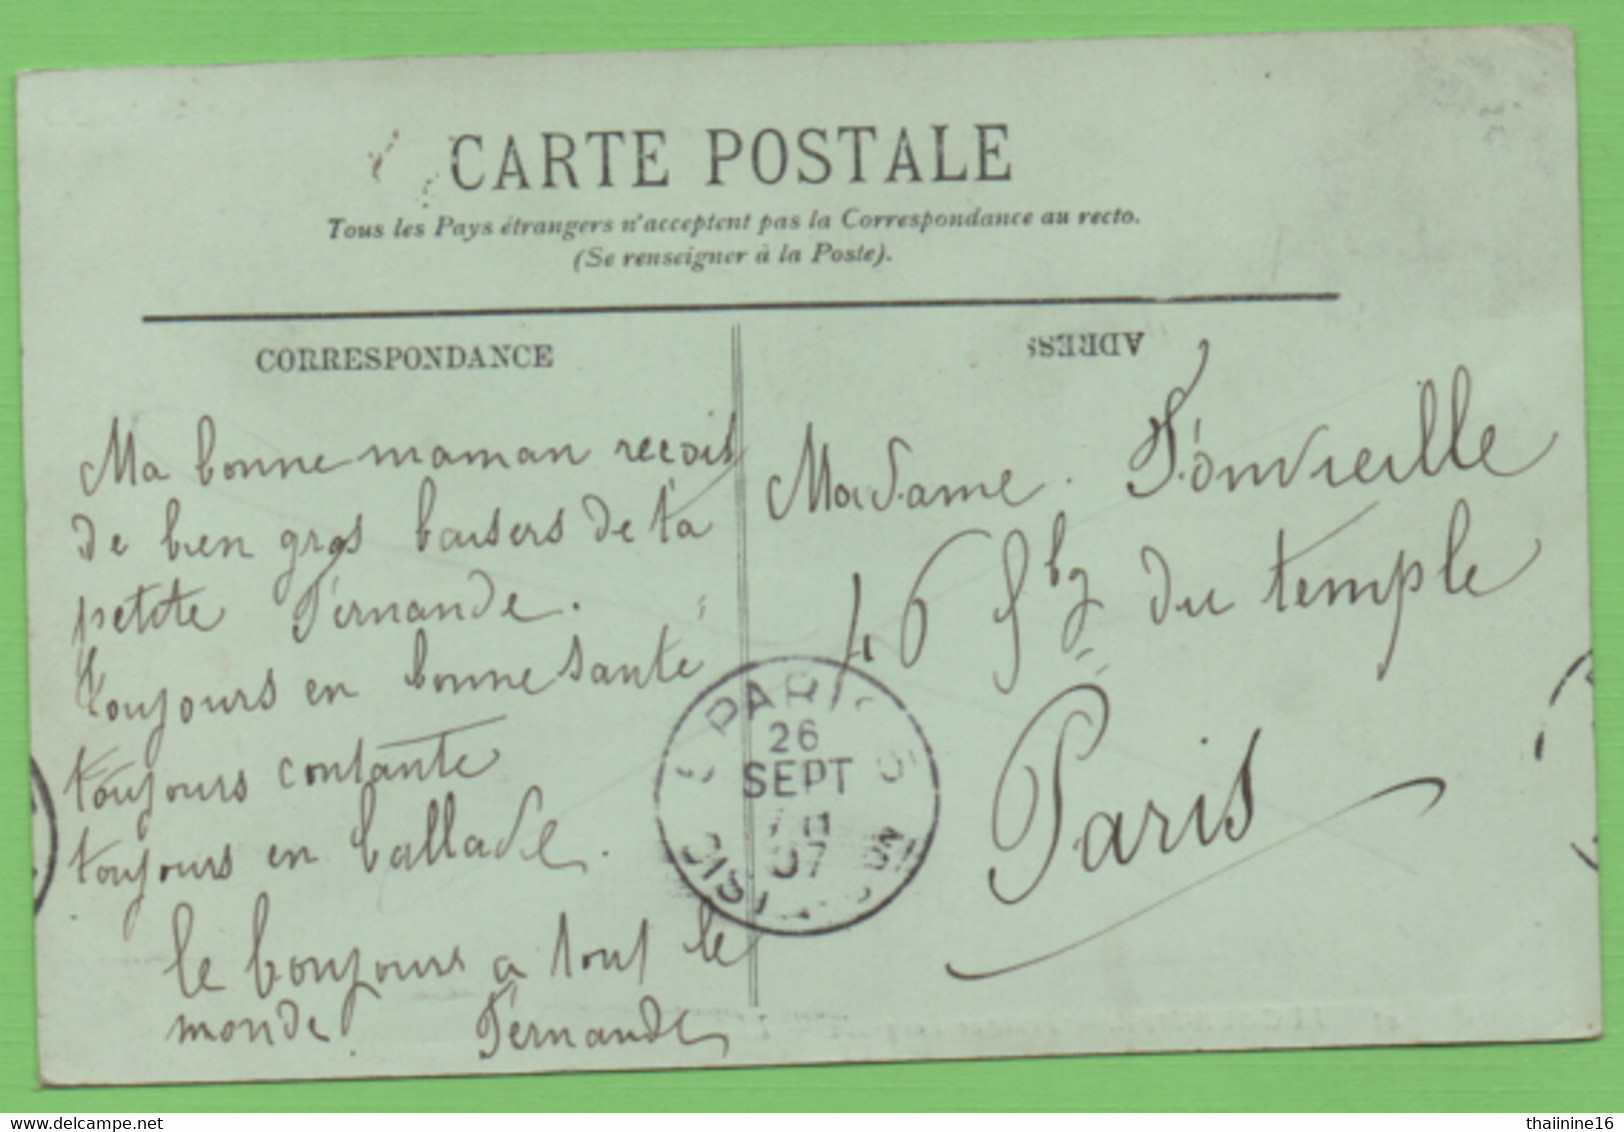 CARTE POSTALE
Tous les Pays étrangers n'acceptent pas la Correspondance au recto.
(Se renseigner à la Poste).
CORRESPONDANCE
ADRESS
Ma bonne maman recoit
de bien gros baisers de ta
petite Fernande.
toujours en bonne santé
toujours contante
toujours en ballade.
le bonjour a tout le
monde. Fernande
Madame. Fonvieille
46 fbg du temple
Paris
PARIS
26
SEPT
07
DISTRIBUTION
delcampe.net
thaiinine16